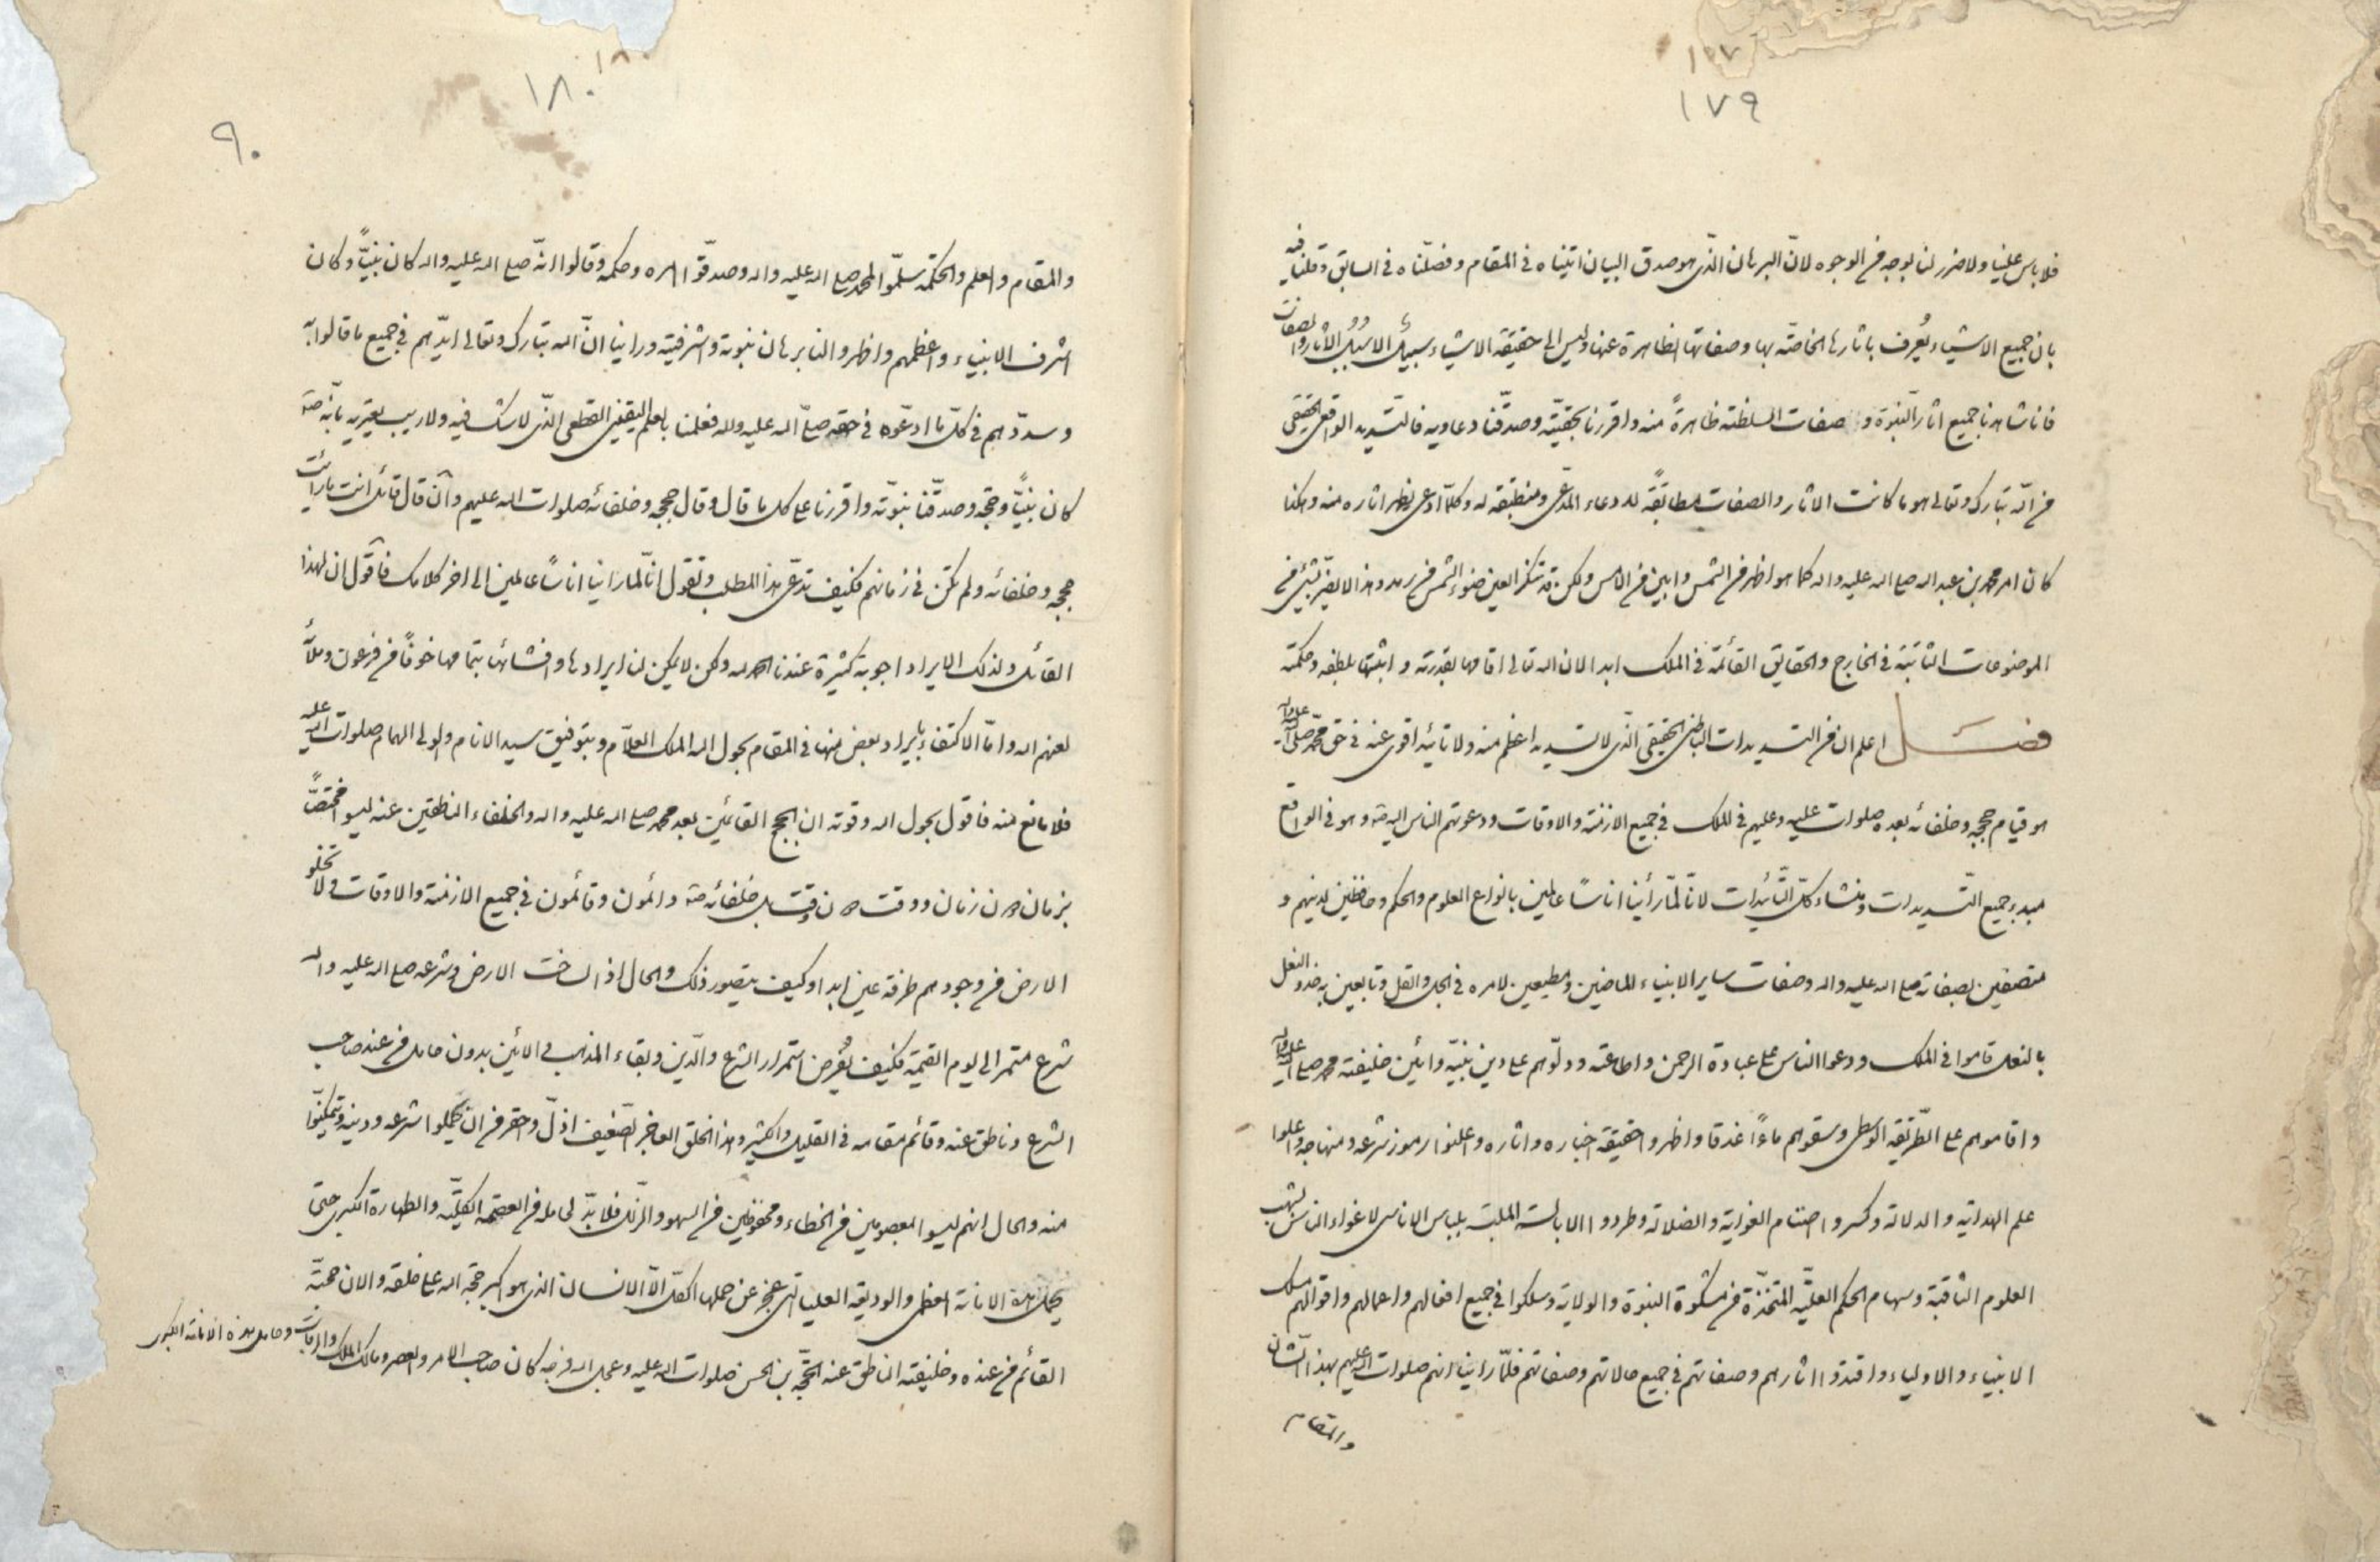 ١٧٧
١٧٩
فلا باس علينا ولا ضرر لنا بوجه من الوجوه لانّ البرهان الذّى هو صدق البيان اتيناه فى المقام وفصلّناه فى السابق وقلنا فيه
بان جميع الاشياء يُعرف باثارها الخاصّة بها وصفاتها الظاهرة عنها وليس الى حقيقة الاشياء سبيل الا سُبُل الاثار والصفات
فانا شاهدنا جميع اثار النّبوة و صفات السلطنة ظاهرةً منه واقررنا بحقيّته وصدّقنا دعاويه فالتّسديد الواقعى الحقيقى
من الله تبارك وتعالى هو ما كانت الاثار والصفات مطابقةً للدعاء المدّعى ومنطبقة له وكلّما ادعى يظهر اثاره منه وهكذا
كان امر محمد بن عبد الله صلى الله عليه واله كما هو اظهر من الشمس وابين من الامس ولكن قد تنكر العين ضوء الشمس من رمد وهذا لا يضرّ بشئ من
الموضوعات الثابتة فى الخارج والحقايق القائمة فى الملك ابدا لان الله تعالى اقامها بقدرته و اثبتها بلطفه وحكمته
فصــل اعلم ان من التسديدات الباطنى الحقيقى الذّى لا تسديد اعظم منه ولا تائيد اقوى عنه فى حق محمّد صلّى الله عليه واله
هو قيام حججه وخلفائه بعده صلوات عليه وعليهم فى الملك فى جميع الازمنة والاوقات ودعوتهم الناس اليه صه وهو فى الواقع
مبدء جميع التّسديدات ومنشاء كلّ التّائيدات لانّا لمّا رأينا اناسًا عالمين بانواع العلوم والحكم وحافظين لدينهم و
متصفين بصفاته صلى الله عليه واله وصفات ساير الانبياء الماضين ومطيعين لامره فى الجل والقل وتابعين به حذو النعل
بالنعل قاموا فى الملك ودعوا الناس على عبادة الرحمن واطاعته ودلّوهم على دين نبيّه وائين خليفته محمد صلى الله عليه واله
واقاموهم على الطّريقة الوسطى وسقوهم ماءً غدقا واظهروا حقيقة اخباره واثاره واعلنوا رموز شرعه ومنهاجه واعلوا
علم الهداية والدلالة وكسروا اصنام الغواية والضلالة وطردوا الابالسة الملبّسة بلباس الاناسى لاغواء الناس بشهب
العلوم الثاقبة وسهام الحكم العليّة المتّخذة من مشكوة النبوة والولاية وسلكوا فى جميع افعالهم واعمالهم واقوالهم مسلك
الانبياء والاولياء واقتدوا اثارهم وصفاتهم فى جميع حالاتهم وصفاتهم فلمّا راينا انهم صلوات الله عليهم بهذا الشّان
والمقام
١٨٠
١٨٠
٩٠
والمقام والعلم والحكمة سلّموا لمحمد صلى الله عليه واله وصدقّوا امره وحكمه وقالوا انّه صلى الله عليه واله كان نبيّاً وكان
اشرف الانبياء واعظمهم واظهروا لنا برهان نبوته واشرفيته وراينا انّ الله تبارك وتعالى ايّدهم فى جميع ما قالوا به
وسدّدهم فى كلّ ما ادعّوه فى حقه صلّى الله عليه واله فعلمنا بالعلم اليقينى القطعى الذّى لا شك فيه ولا ريب يعتريه بانّه صه
كان نبيًّا وحجّة وصدّقنا نبوّته واقررنا على كل ما قال وقال حججه وخلفائه صلوات الله عليهم وان قال قائل انت ما رأيت
حججه وخلفائه ولم تكن فى زمانهم فكيف تدعّى هذا المطلب وتقول انّا لمّا راينا اناسًا عالمين الى اخر كلامك فاقول ان لهذا
القائل ولذلك الايراد اجوبة كثيرة عندنا الحمد لله ولكن لا يمكن لنا ايرادها وافشائها بتمامها خوفًا من فرعون وملأه
لعنهم الله وامّا الاكتفاء بايراد بعض منها فى المقام بحول الله الملك العلاّم وبتوفيق سيد الانام والولى الهمام صلوات الله عليه
فلا مانع منه فاقول بحول الله وقوته ان الحجج القائمين بعد محمد صلى الله عليه واله والخلفاء الناطقين عنه ليسوا مختصًّا
بزمان دون زمان ووقت دون وقت بل خلفائه صه دائمون وقائمون فى جميع الازمنة والاوقات ولا تخلو
الارض من وجودهم طرفة عين ابدا وكيف يتصور ذلك والحال اذا لساخت الارض وشرعه صلى الله عليه واله
شرع مستمر الى يوم القيمة فكيف يُفرض استمرار الشرع والدّين وبقاء المذهب والائين بدون حامل من عند صاحب
الشرع وناطق عنه وقائم مقامه فى القليل والكثير وهذا الخلق العاجز الضّعيف اذلّ واحقر من ان يحملوا شرعه ودينه ويتمكنّوا
منه والحال انهم ليسوا بمعصومين من الخطاء ومحفوظين من السهو والزّلل فلا بدّ لحامله من العصمة الكلّيّة والطهارة الكبرى حتى
يحمل هذه الامانة العظمى والوديعة العليا التى عجز عن حملها الكلّ الّا الانسان الذى هو اكبر حجّة الله على خلقه والان حجّته
القائم من عنده وخليفته الناطق عنه الحجّة بن الحسن صلوات الله عليه وعجل الله فرجه كان صاحب الامر والعصر ومالك الملك والرقاب وحامل هذه الامانة الكبرى